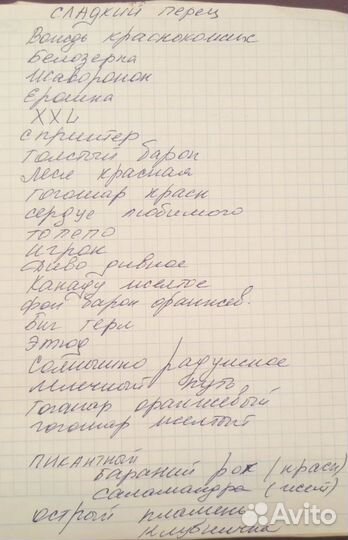 СЛАДКИЙ перец
Вождь краснокожих
Белозерка
Жаворонок
Ерошка
XXL
Спринтер
Толстый барон
Леся красная
Гогошар красн
сердце любимого
Тополо
Игрок
Диво дивное
Канару желтое
фон барон оранжев.
Биг герл
Этюд
Солнышко радужное
Млечный путь
Гогошар оранжевый
гогошар желтый
ПИКАНТНЫЙ
Бараний рог (красн)
Саламандра (желт)
ОСТРЫЙ пламень
клубничка
Avito